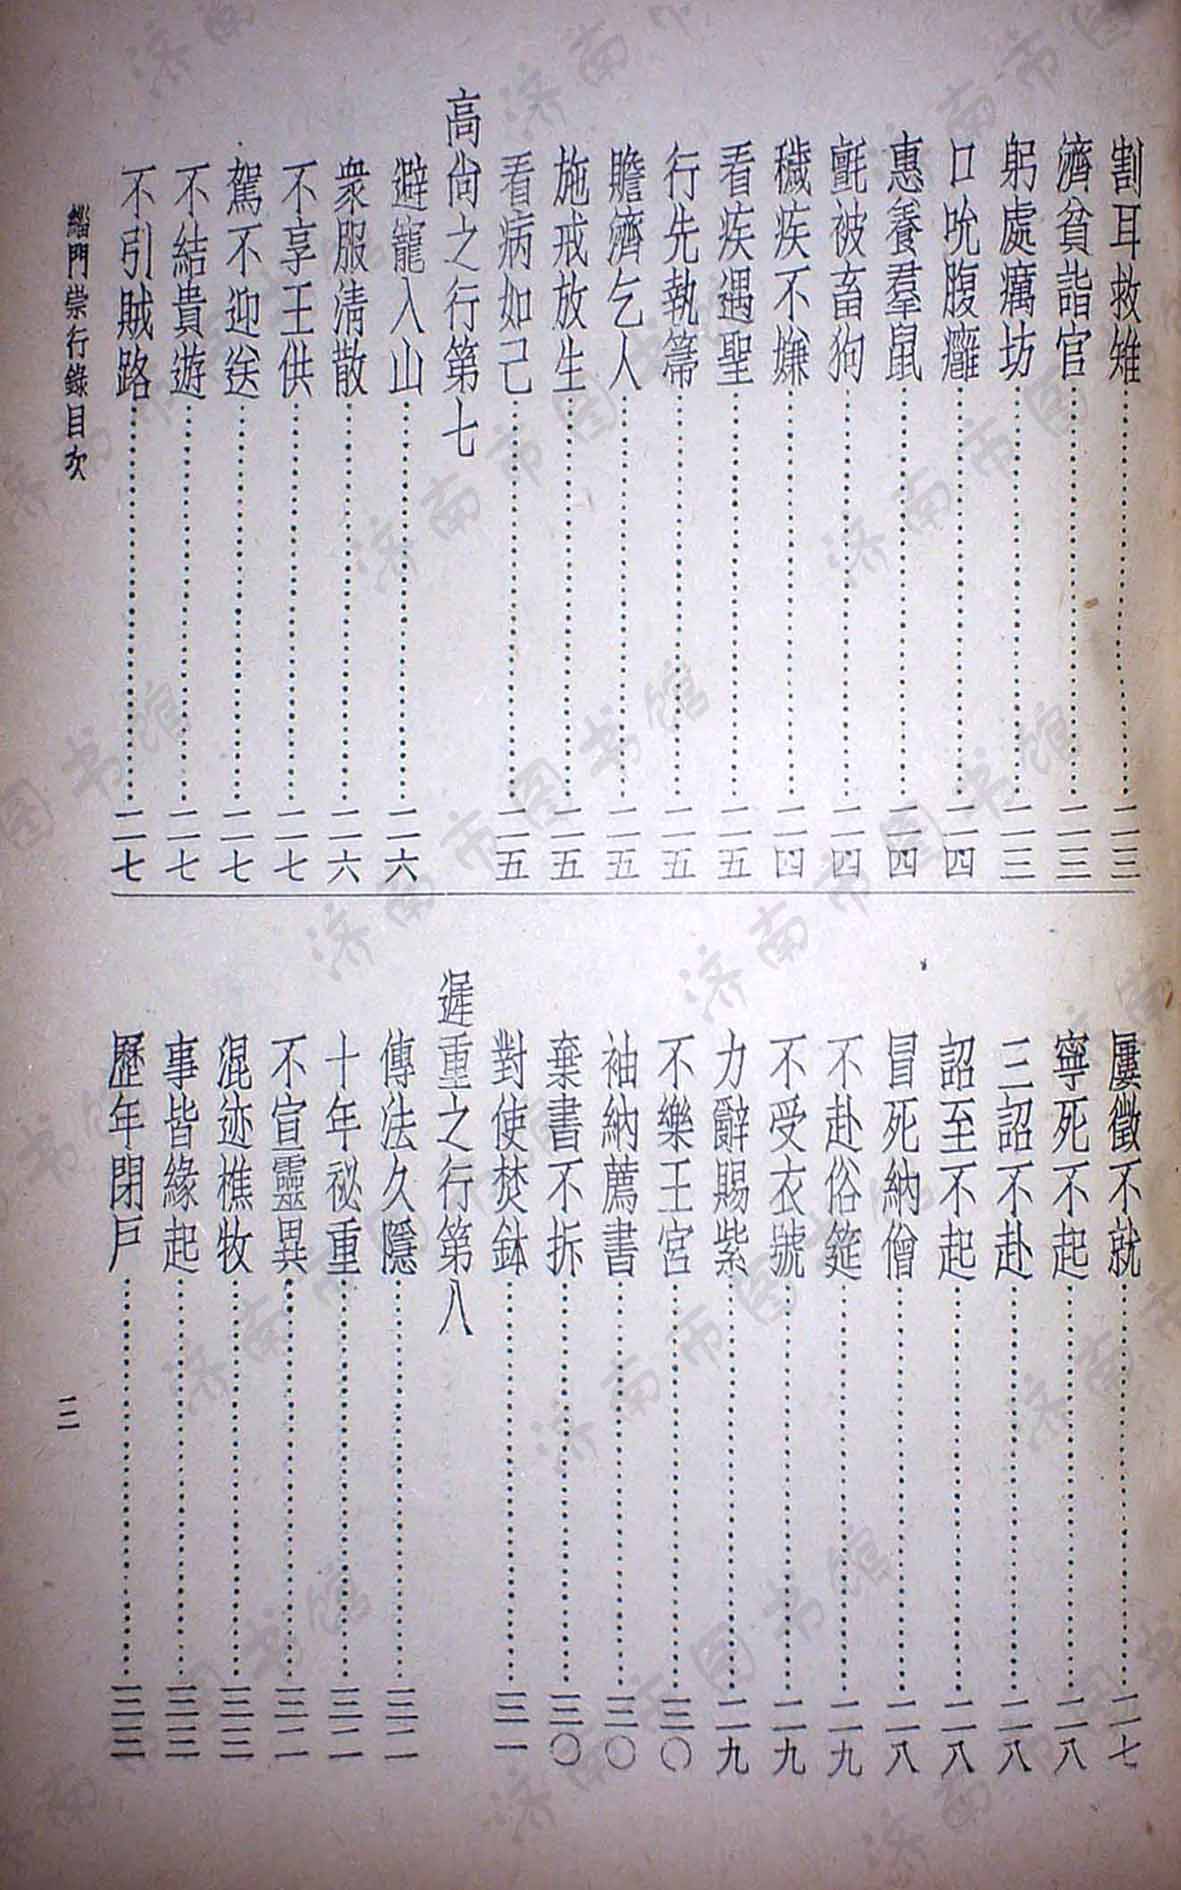 割耳救雉……………………二三
濟貧詣官……………………二三
躬處癘坊……………………二三
口吮腹癰……………………二四
惠養羣鼠……………………二四
氈被畜狗……………………二四
穢疾不嫌……………………二四
看疾遇聖……………………二五
行先執箒……………………二五
贍濟乞人……………………二五
施戒放生……………………二五
看病如己……………………二五
高尚之行第七
避寵入山……………………二六
衆服清散……………………二六
不享王供……………………二七
駕不迎送……………………二七
不結貴遊……………………二七
不引賊路……………………二七
屢徵不就……………………二七
寧死不起……………………二八
三詔不赴……………………二八
詔至不起……………………二八
冒死納僧……………………二八
不赴俗筵……………………二九
不受衣號……………………二九
力辭賜紫……………………二九
不樂王宮……………………三〇
袖納薦書……………………三〇
棄書不拆……………………三〇
對使焚鉢……………………三一
遲重之行第八
傳法久隱……………………三二
十年祕重……………………三二
不宣靈異……………………三二
混迹樵牧……………………三三
事皆緣起……………………三三
歷年閉戶……………………三三
緇門崇行錄目次
三
济南市图书馆